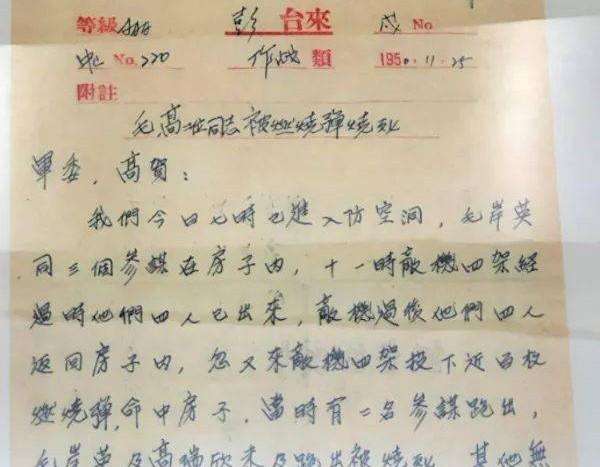 等級 AAAA 彭 台來 戍 No
No. 220 作战 類 1950.11.25
附註
毛高二位同志被燃燒彈燒死
軍委,高賀:
我們今日七時已進入防空洞,毛岸英
同三個參謀在房子內,十一時敵機四架經
過時他們四人已出來,敵機過後他們四人
返回房子內,忽又來敵機四架投下近百枚
燃燒彈,命中房子,當時有二名參謀跑出,
毛岸英及高瑞欣未及跑出被燒死,其他無